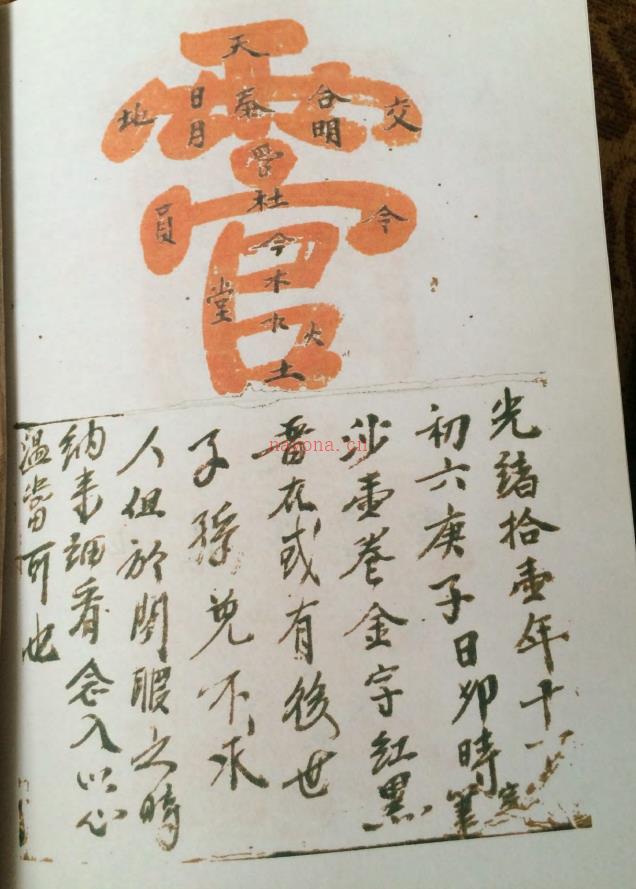 天
地 日月 泰 合明 交
杜
員 令
今
木
堂 水 火
土
光緒拾壹年十一
初六庚子日卯時筆完
抄壹卷金字紅黑
在或有後世
子孫免不求
人但於閒暇之時
納来細看念入以心
温當可也
nayona.cn